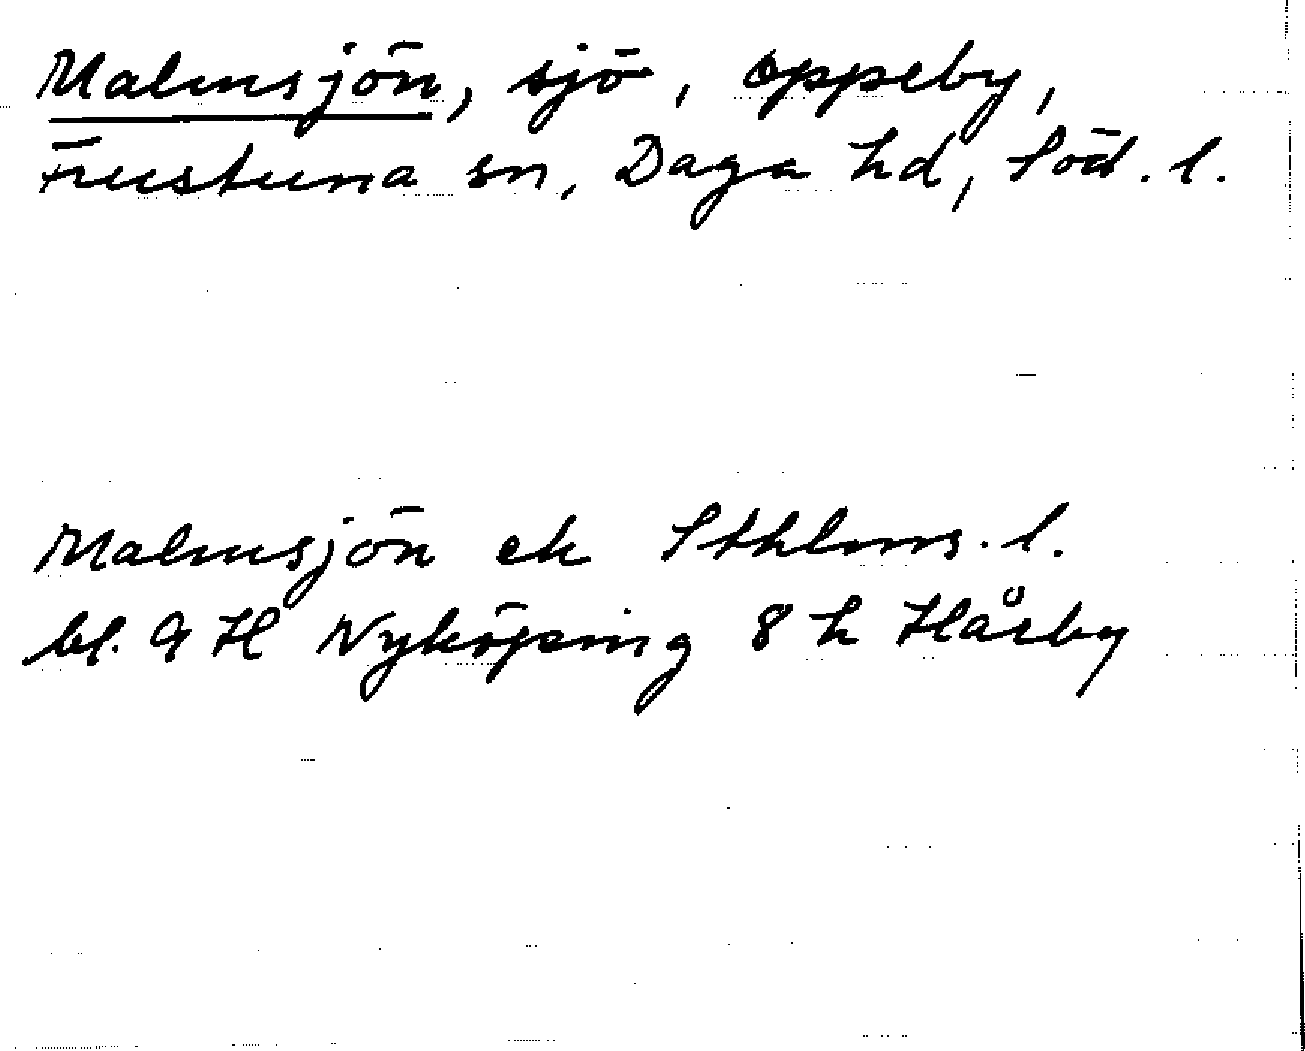 Malmsjön, sjö, Oppeby,
Frustuna sn, Daga hd, Söd. l.
Malmsjön ek Sthlms. l.
bl. 9 H Nyköping 8 h Håsby